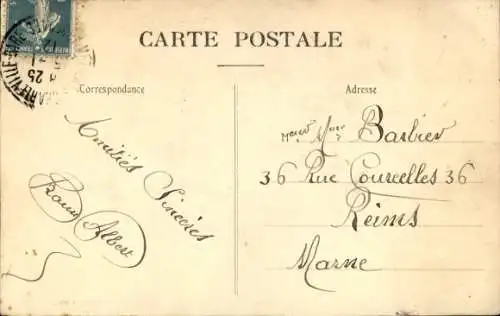 CARTE POSTALE
Correspondance
Amitiés Sincères
Albert
Adresse
Barbier
36 Rue Courcelles 36
Reims
Marne